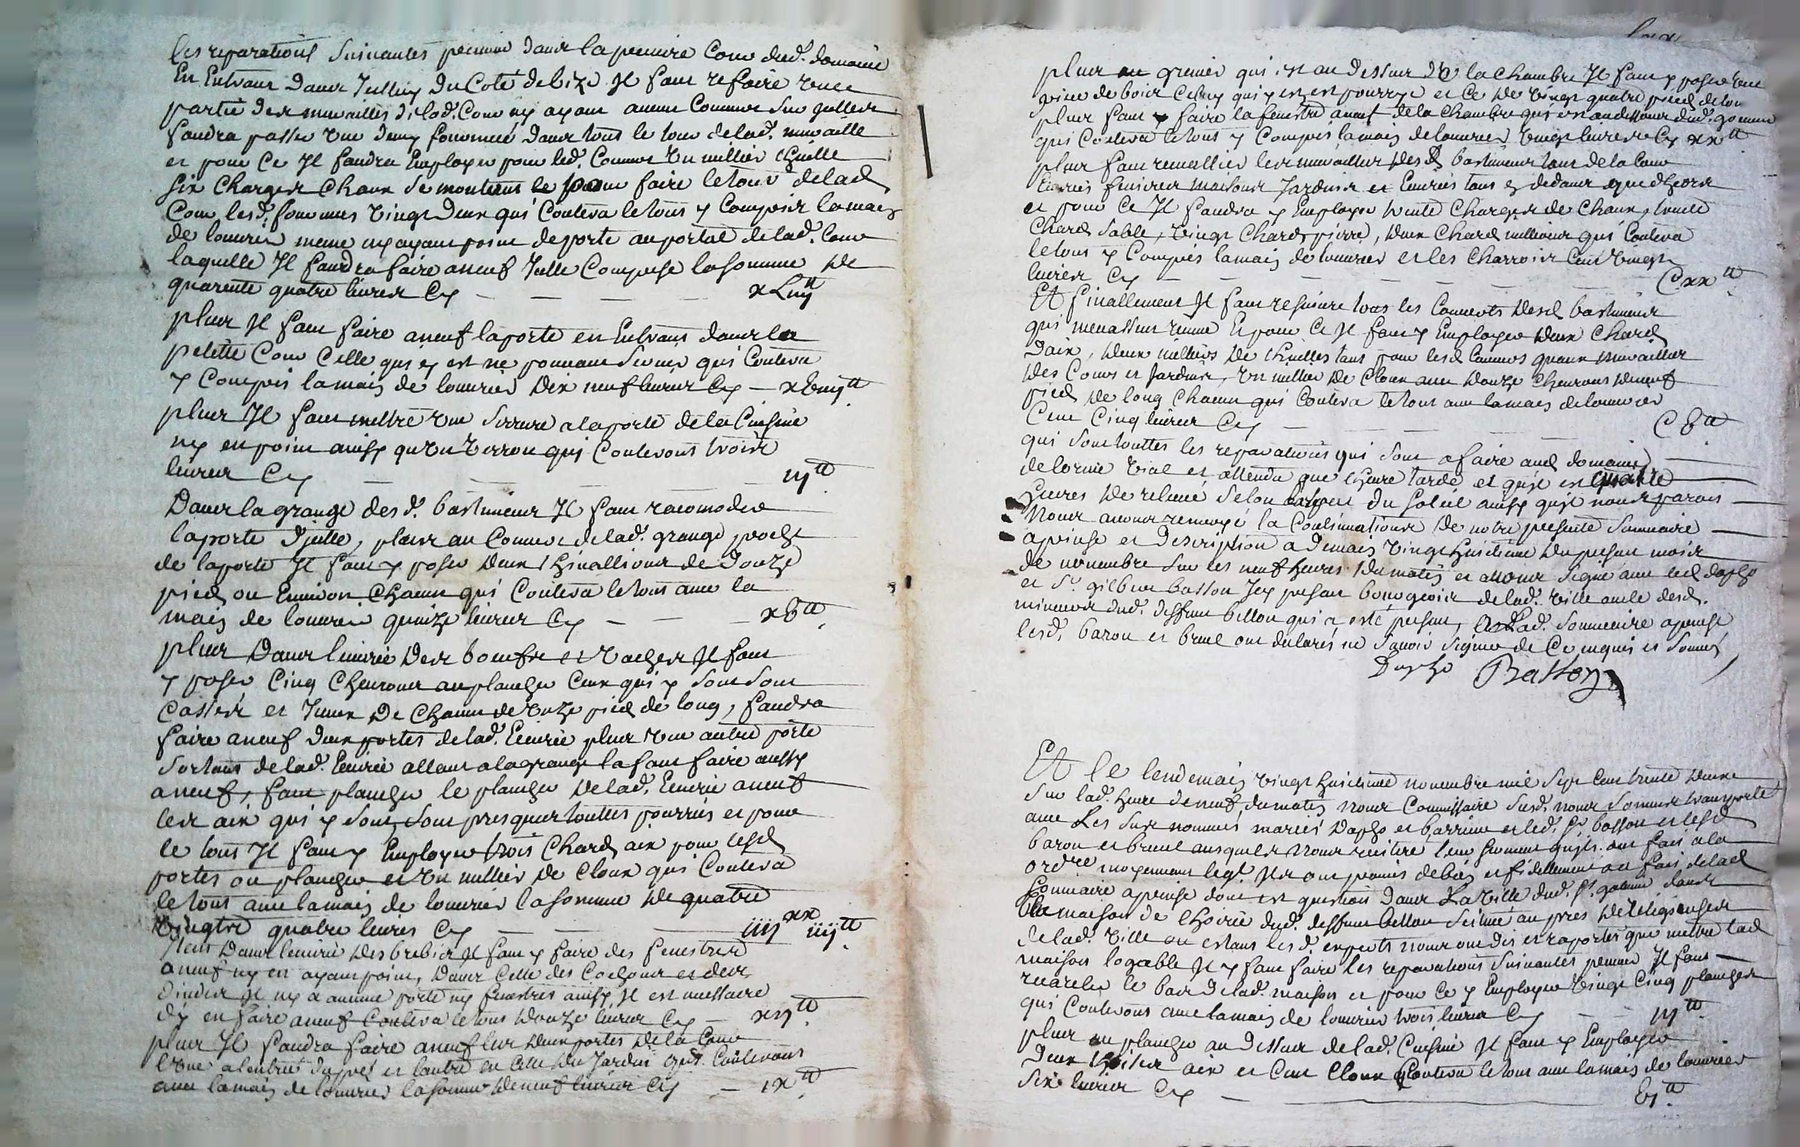 les reparations suivantes premier dans la premiere Cour dud. domaine
En Entrant dans du Coté de bize Il faut refaire une
partie des murailles de lad. Cour ny ayant aucun Couvert sur
faudra passer une dans tout le tour de lad. muraille
et pour Ce Il faudra Employer pour led. Couvert Un millier thuille
six Charges Chaux pour faire le tour de lad.
Cour lesd. vingt deux qui Coutera le tout y Compris la main
de louvrier meme ny ayant point de porte au portal de lad. Cour
laquelle Il faudra faire a neuf Jcelle Compose la somme De
quarente quatre livres Cy — — — — xLiiij tt
plus Il faut faire a neuf la porte en Entrant dans la
petitte Cour Celle qui y est ne pouvant servir qui Coutera
y Compris la main de louvrier Dix neuf livres Cy —
plus Il faut mettre une serrure a la porte de la Cuisine
ny en point ainsy qu'un verrou qui Couteront trois
livres Cy — — — iij tt
Dans la grange desd. bastiments Il faut racomoder
la porte d'jcelle, plus au Couvert de lad. grange proche
de la porte Il faut y poser Deux de Douze
pieds ou Environ Chacun qui Coutera le tout avec la
main de louvrier quinze livres Cy — — — xv tt
plus Dans lecurie Des boeufs et vaches Il faut
y poser Cinq Chevrons au plancher Ceux qui y sont sont
Casses et Jceux De Chacun de onze pied de long, faudra
faire a neuf deux portes de lad. Ecurie plus une autre porte
sortant de lad. Ecurie allant a la grange la faut faire aussy
a neuf, faut plancher le plancher de lad. Ecurie a neuf
les aix qui y sont, sont presque touttes pourries et pour
le tout Il faut y Employer trois Chards aix pour lesd.
portes ou plancher et Un millier De Cloux qui Coutera
le tout avec la main de louvrier la somme De quatre
vingts quatre livres Cy — — iiij xx iiij tt
Dans lecurie Des brebis Il faut y faire des fenestres
a neuf ny en ayant point, dans Celle des Cochons et des
dindes Il ny a aucune porte ny fenestres ainsy Il est necessaire
d'y en faire a neuf Coutera le tout Douze livres Cy — xij tt
plus Il faudra faire a neuf les deux portes De la Cour
lune a lentrée et lautre en Celle Du Jardin qui Couteront
avec la main de louvrier la somme De neuf livres Cy — ix tt
plus au grenier qui est au dessus De la Chambre Il faut y poser une
piece de bois Celuy qui y est est pourry et Ce De vingt quatre pieds de long
plus faut y faire la fenestre a neuf de la Chambre qui est au dessous dud. grenier
qui Coutera le tout y Compris la main de louvrier vingt livres Cy xx tt
plus faut les murailles Desd. bastiments tant de la Cour
Ecuries maisons Jardins et Ecuries tant en dedans que dehors
et pour Ce Il faudra y Employer trente Charges de Chaux, trente
Chards sable, vingt Chards pierre, deux Chards qui Coutera
le tout y Compris la main de louvrier et les Charrois Cent vingt
livres Cy — — — — Cxx tt
Et finallement Il faut tous les Couverts Desd. bastiments
qui menassent ruine Et pour Ce Il faut y Employer deux Chards
Daix, deux milliers De thuilles tant pour lesd. Couverts quaux murailles
Des Cours et Jardins, Un millier De Cloux avec Douze Chevrons De neuf
pieds De long Chacun qui Coutera le tout avec la main de louvrier
Cent Cinq livres Cy — — — C v tt
qui sont touttes les reparations qui sont a faire aud. domaine
de et attendu que lheure tarde et quil est quatre
heures De relevée selon du soleil ainsy quil nous paroit
Nous avons renvoyé la Continuation De notre presente sommaire
aprinse et Description a Demain vingt huitieme Du present mois
De novembre sur les neuf heures Du matin et avons signé avec led. Dapho
et Sr. gilbert basson Jcy present bourgeois de lad. ville desd.
mineurs dud. deffunt billon qui a esté present, a lad. sommaire aprinse
lesd. baron et brual ont declarés ne savoir signer de Ce enquis et sommés
Dapho Basson
Et le lendemain vingt huitieme novembre mil sept Cent trente Deux
sur lad. heure de neuf du matin nous Commissaire susd. nous sommes transporté
avec Les sus nommés Dapho et et led. Sr. basson et lesd.
baron et brual ausquels nous reitéré leur serment quils ont fait a la
ordre moyennant lequel Ils ont promis de bien et fidellement au fait de lad.
sommaire aprinse dont est question dans La ville dud. St. dans
la maison de lhoirie dud. deffunt billon scituée au pres
de lad. ville ou estant lesd. experts nous ont dit et raportés que mettre lad.
maison logable Il y faut faire les reparations suivantes premier Il faut
le bas de lad. maison et pour Ce y Employer vingt Cinq planches
qui Couteront avec la main de louvrier trois livres Cy — — iij tt
plus au plancher au dessus de lad. Cuisine Il faut y Employer
deux aix et Cent Cloux Coutera le tout avec la main de louvrier
six livres Cy — — vj tt